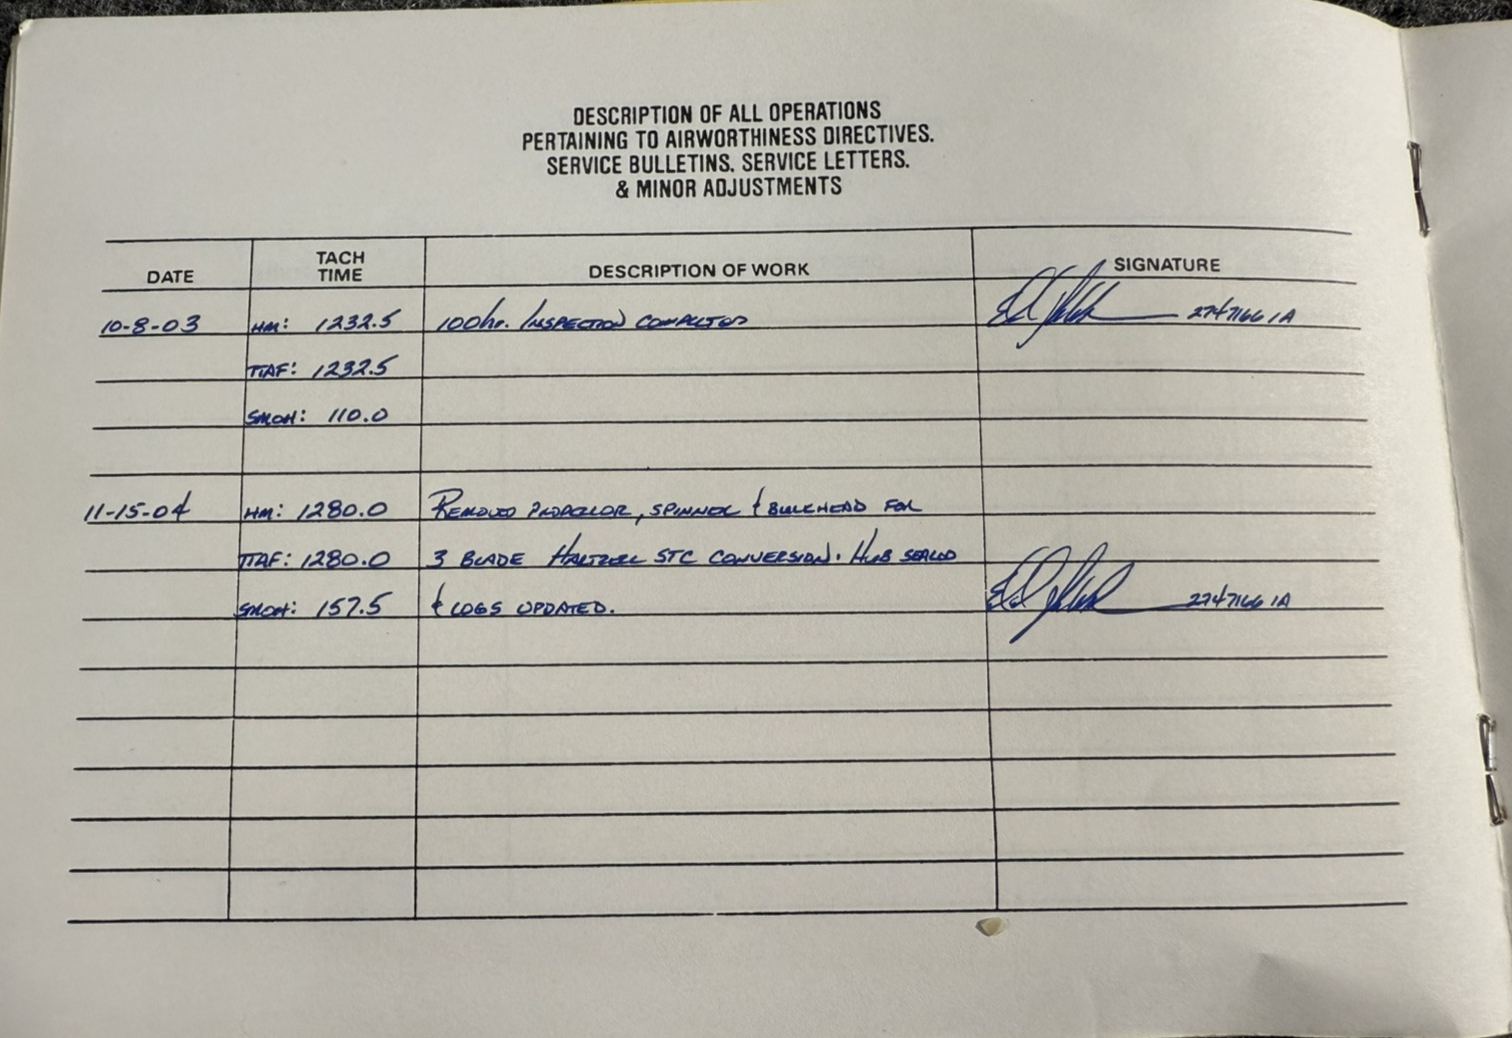 DESCRIPTION OF ALL OPERATIONS
PERTAINING TO AIRWORTHINESS DIRECTIVES.
SERVICE BULLETINS. SERVICE LETTERS.
& MINOR ADJUSTMENTS
DATE TACH TIME DESCRIPTION OF WORK SIGNATURE
10-8-03 HM: 1232.5 100hr. INSPECTION COMPLETED 2747166 IA
TTAF: 1232.5
SMOH: 110.0
11-15-04 HM: 1280.0 REMOVED PROPELLOR, SPINNER & BULKHEAD FOR
TTAF: 1280.0 3 BLADE HARTZELL STC CONVERSION. HUB SEALED
SMOH: 157.5 & LOGS UPDATED. 2747166 IA